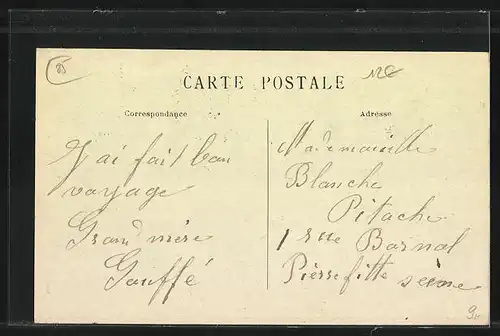 85
CARTE POSTALE
12€
Correspondance
Adresse
J'ai fait bon
voyage
Grand mère
Gouffé
Mademoiselle
Blanche
Pitache
1 rue
Pierrefitte seine